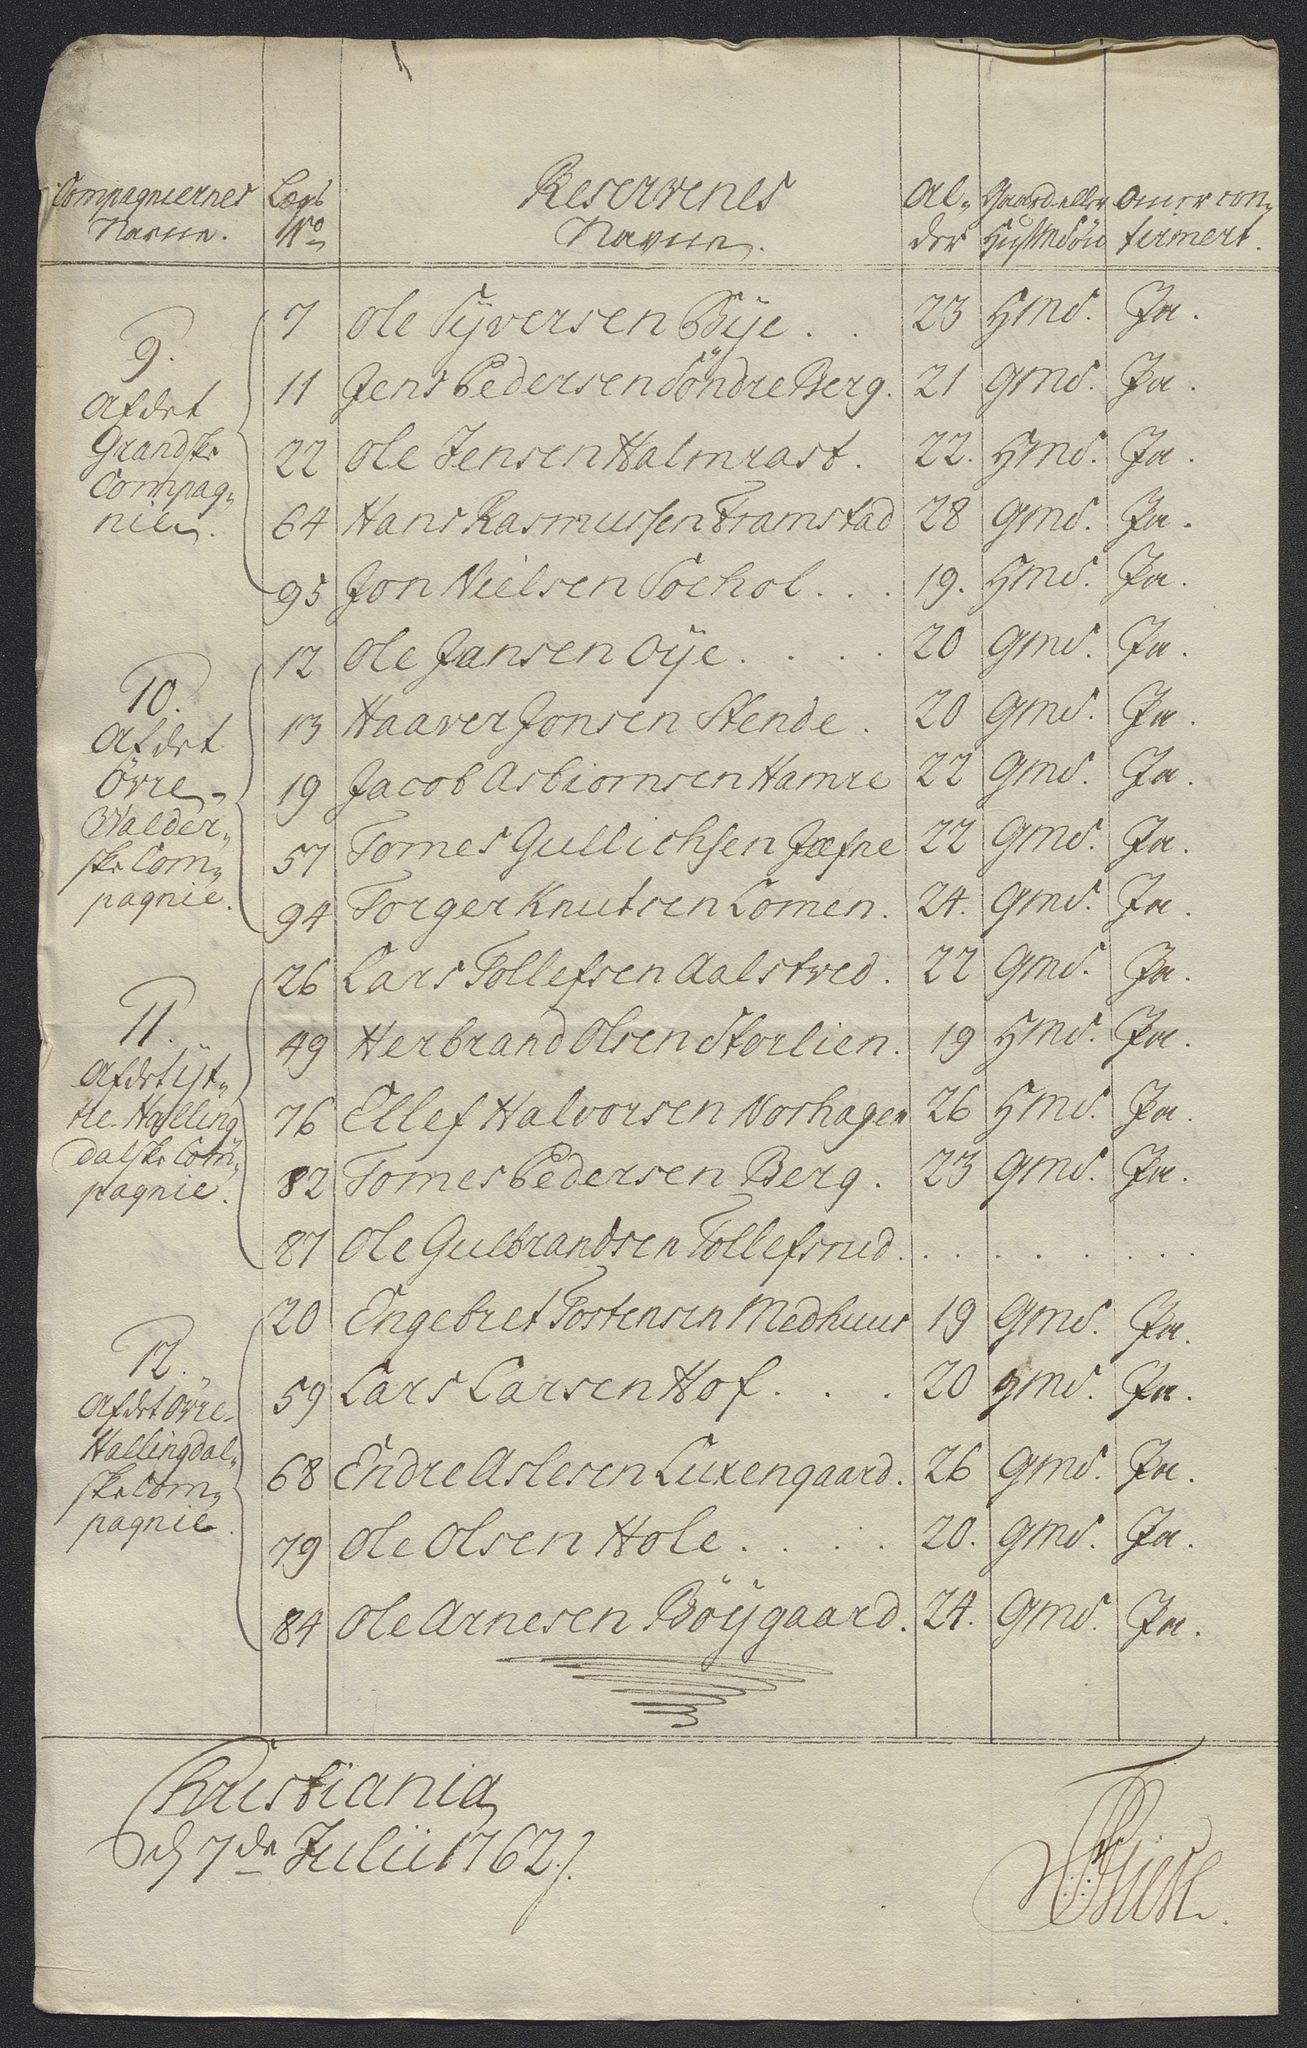 Compagniernes Navne. | Lægs No | Reservenes Navne. | Alder | Gaard eller Huusm Sön | Om er confirmert.
9. Af det Grandske Compagnie.
7 | Ole Syversen Bye . . | 23 | Hmd. | Ja.
11 | Jens Pedersen Söndre Berg. | 21 | Gmd. | Ja.
22 | Ole Jensen Halmrast. | 22. | Hmd. | Ja.
64 | Hans Rasmussen Framstad | 28 | Gmd. | Ja.
95 | Jon Nielsen Sochol . . . | 19. | Hmd. | Ja.
10. Af det Övre Walderske Compagnie.
12 | Ole Jansen Oÿe . . . . | 20 | Gmd. | Ja.
13 | Haaver Jonsen Stende. | 20 | Gmd. | Ja.
19 | Jacob Asbiornsen Hamre | 22 | Gmd. | Ja.
57 | Tomes Gullichsen Jæfne | 22 | Gmd. | Ja.
94 | Torger Knutsen Lomen. | 24. | Gmd. | Ja.
11. Af det Ÿtre Hallingdalske Compagnie.
26 | Lars Tollefsen Aalstved. | 22 | Gmd. | Ja.
49 | Herbrand Olsen Storlien. | 19 | Hmd. | Ja.
76 | Ellef Halvorsen Norhagen | 26 | Hmd. | Ja.
82 | Tomes Pedersen Berg. | 23 | Gmd. | Ja.
87 | Ole Gulbrandsen Tollefsrud. . . . . . . . .
12. Af det Övre Hallingdalske Compagnie.
20 | Engebret Tostensen Medhuus | 19 | Gmd. | Ja.
59 | Lars Larsen Hof. . . . | 20 | Hmd. | Ja.
68 | Endre Aslesen Luxengaard. | 26 | Gmd. | Ja.
79 | Ole Olsen Hole . . . . | 20. | Gmd. | Ja.
84 | Ole Arnesen Böÿgaard. | 24. | Gmd. | Ja.
Christiania
d 7de Julii 1762.